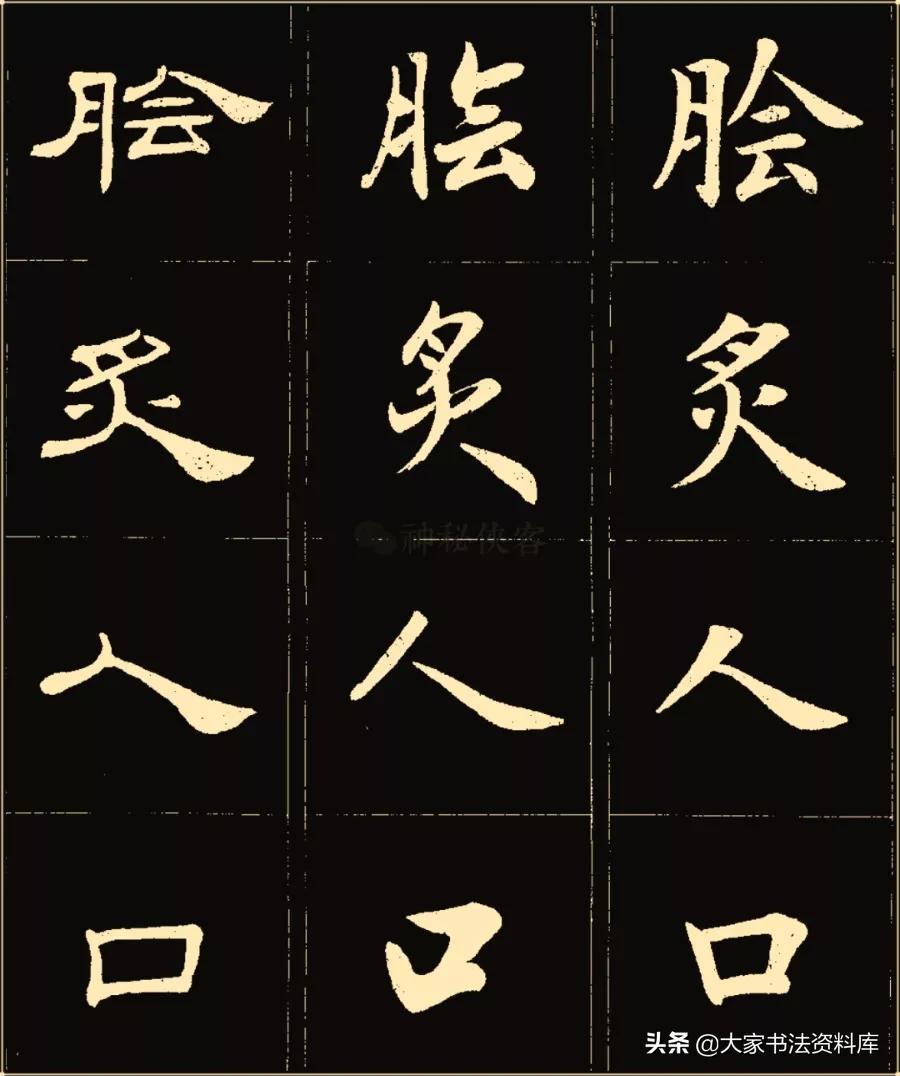 脍炙人口
脍炙人口
脍炙人口
神秘侠客
头条 @大家书法资料库